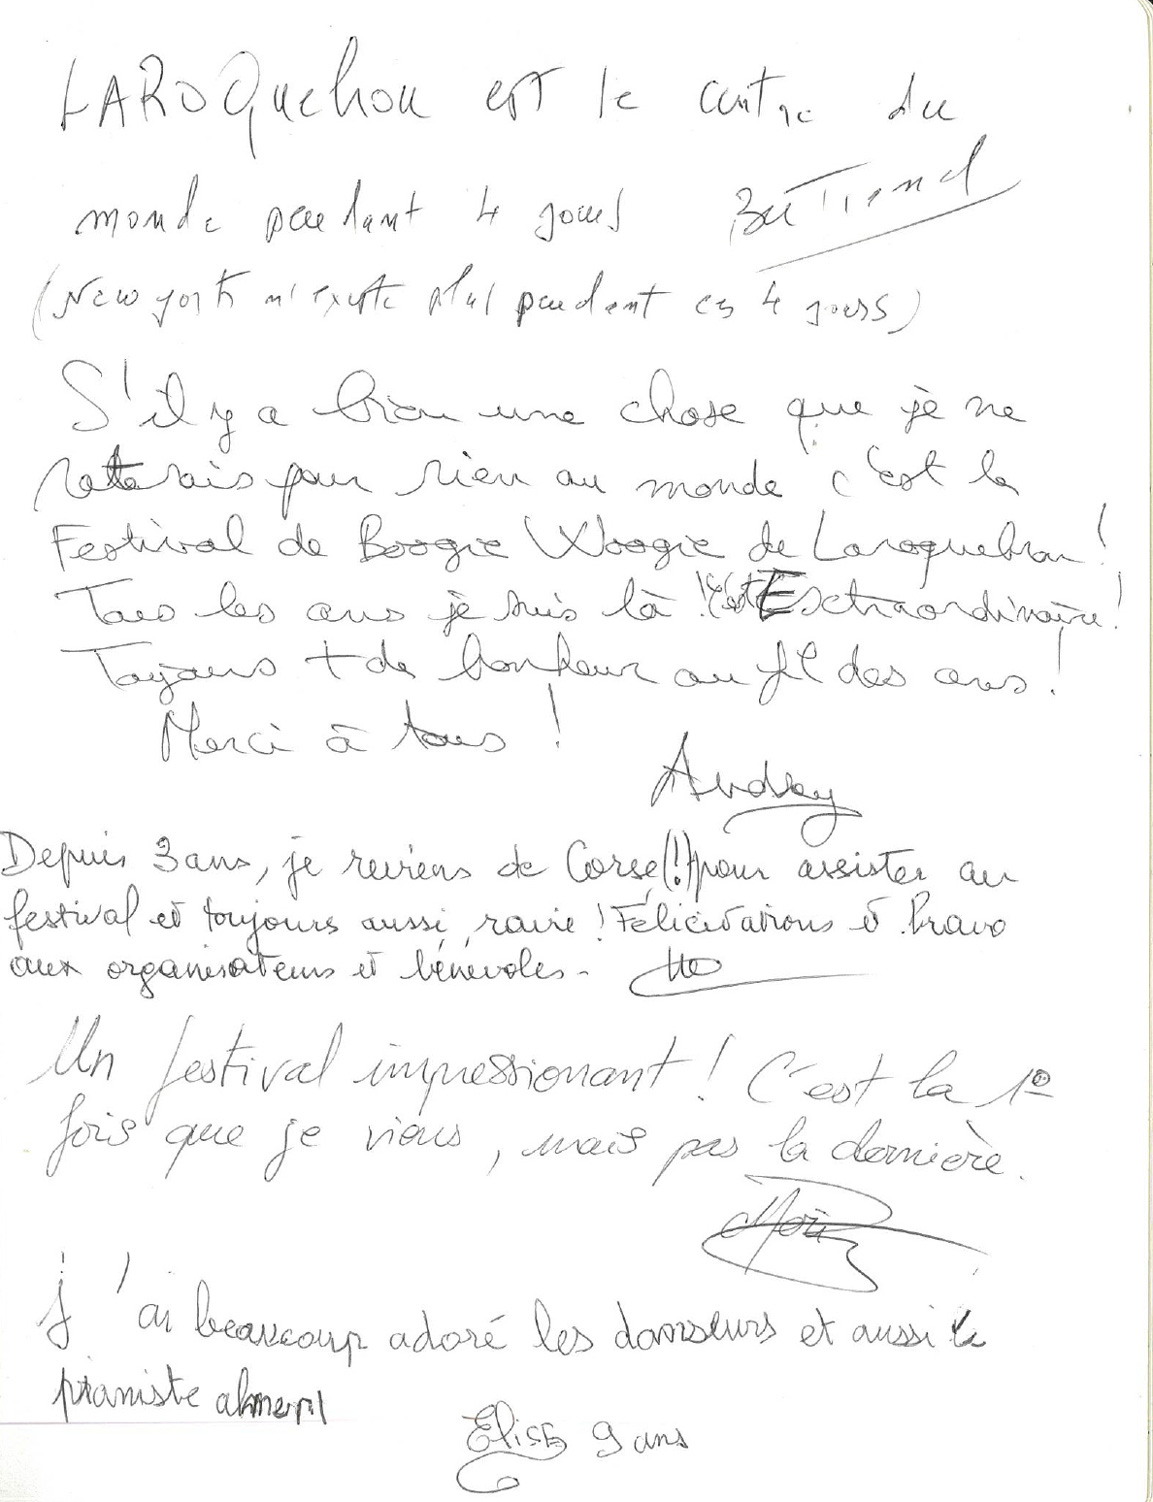 LAROQuebrou est le centre du
monde pendant 4 jours Bertrand
(New york n'existe plus pendant ces 4 jours)
S'il y a bien une chose que je ne
raterais pour rien au monde c'est le
Festival de Boogie Woogie de Laroquebrou !
Tous les ans je suis là ! C'est Extraordinaire !
Toujours + de bonheur au fil des ans !
Merci à tous !
Audrey
Depuis 3 ans, je reviens de Corse (!) pour assister au
festival et toujours aussi ravie ! Félicitations et bravo
aux organisateurs et bénévoles -
Un festival impressionant ! C'est la 1e
fois que je viens, mais pas la dernière.
J'ai beaucoup adoré les danseurs et aussi le
pianiste
Elise 9 ans